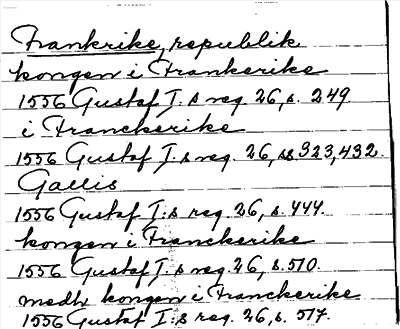 Frankrike, republik
kongen i Frankerike
1556 Gustaf I:s reg. 26, s. 249
i Franckerike
1556 Gustaf I:s reg. 26, ss 323, 432.
Gallis
1556 Gustaf I:s reg. 26, s. 444.
kongen i Franckerike
1556 Gustaf I:s reg. 26, s. 510.
medh kongen i Franckerike
1556 Gustaf I:s reg. 26, s. 517.